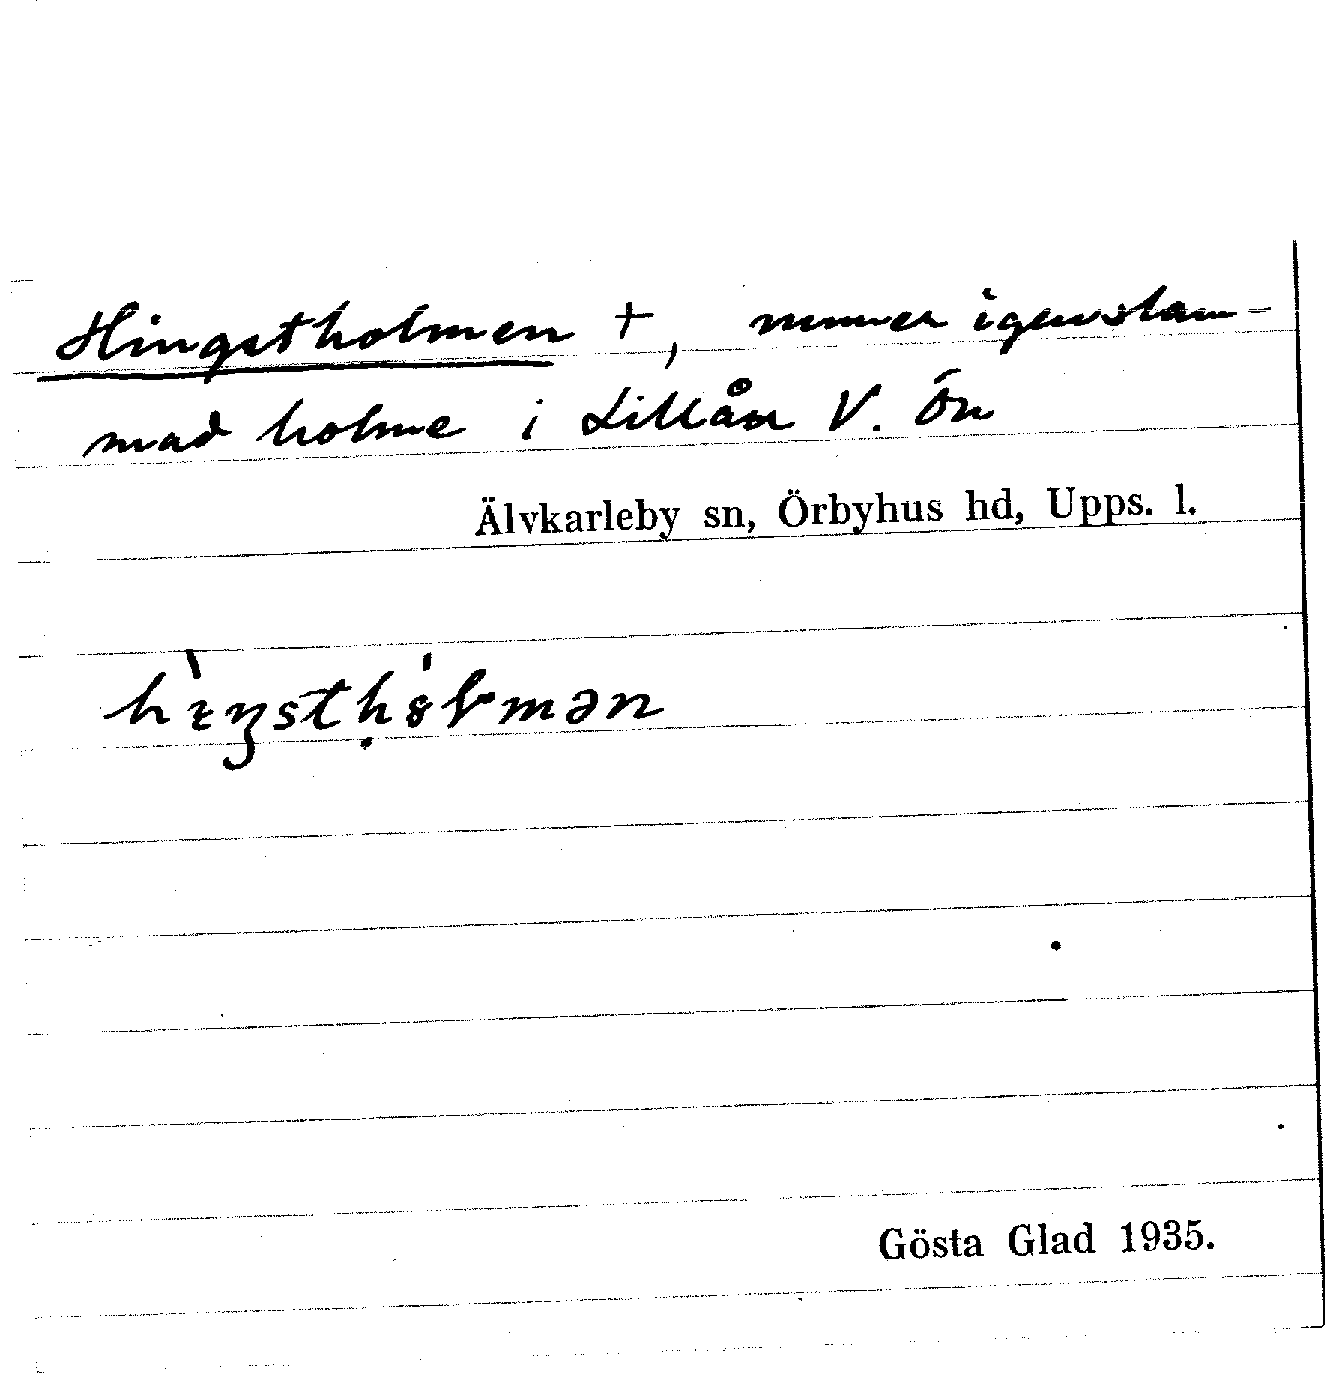 Hingstholmen +, numer igenslam-
mad holme i Lillån V. Ön
Älvkarleby sn, Örbyhus hd, Upps. l.
Gösta Glad 1935.